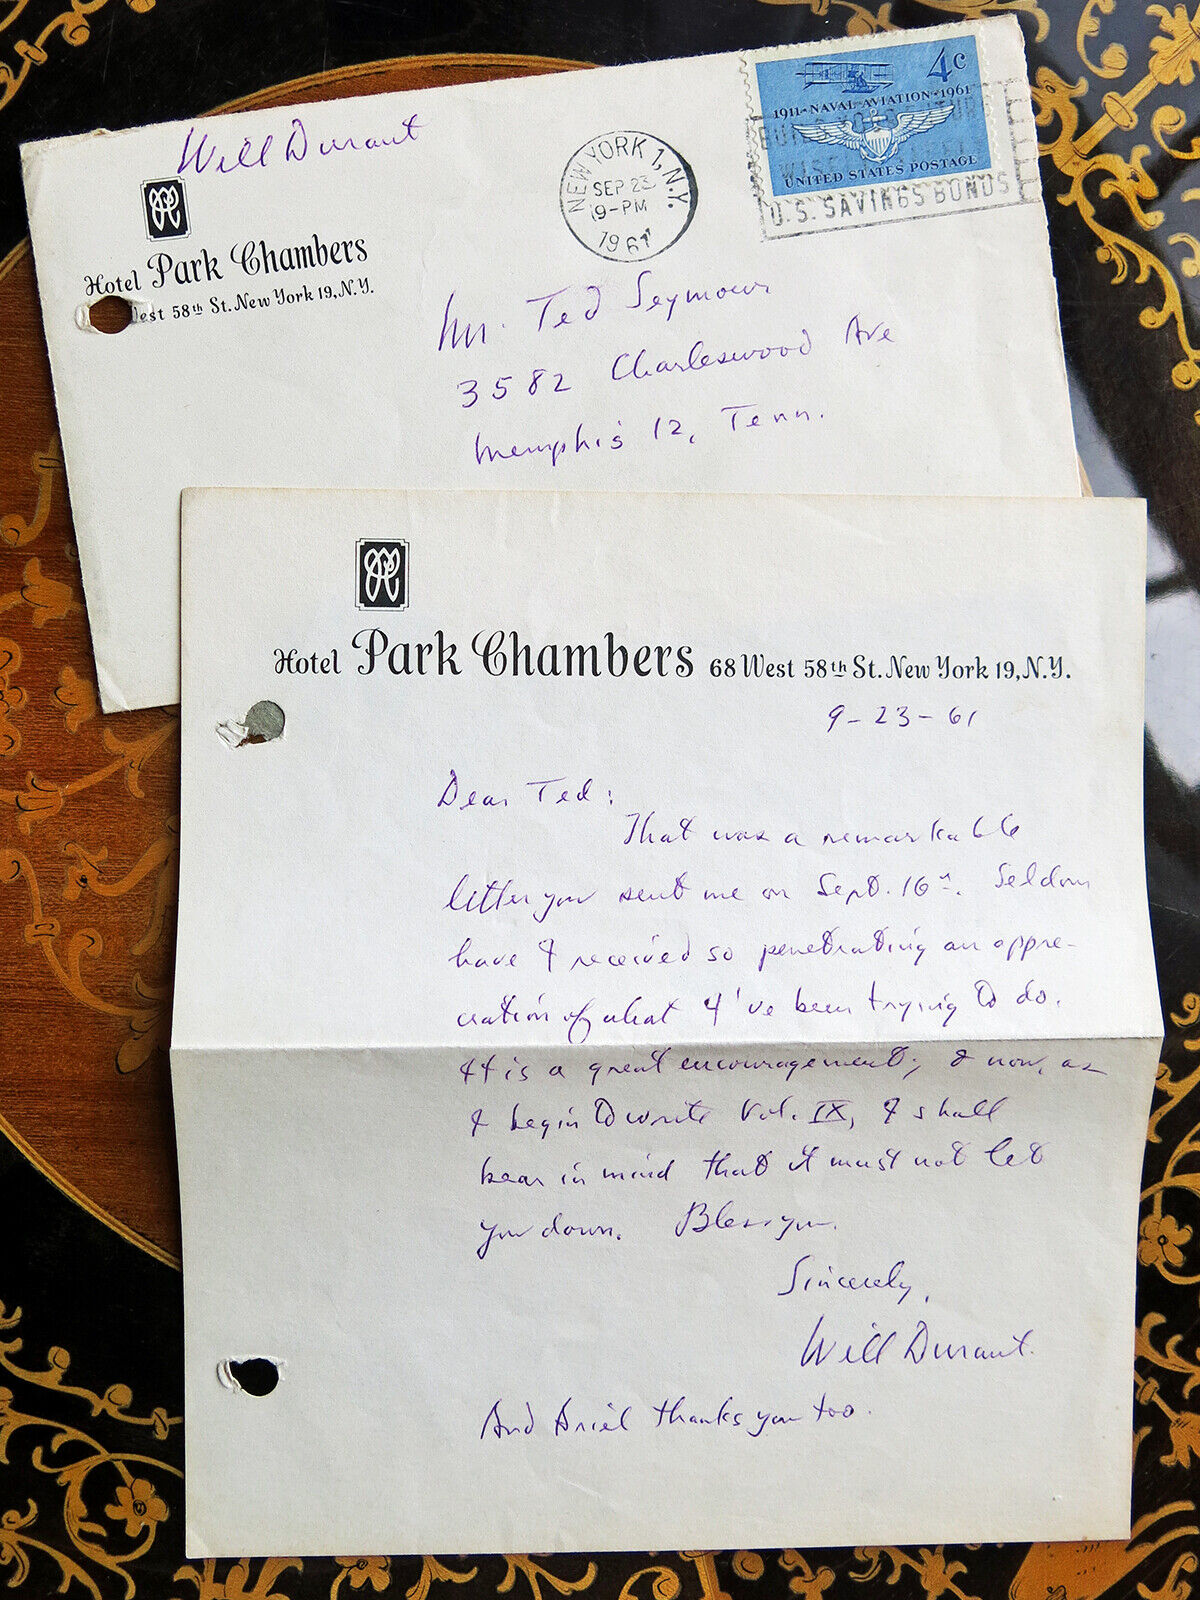 Will Durant
Hotel Park Chambers
West 58th St. New York 19, N.Y.
NEW YORK 1, N.Y.
SEP 23
9-PM
1961
4c
1911·NAVAL AVIATION·1961
UNITED STATES POSTAGE
U.S. SAVINGS BONDS
Mr. Ted Seymour
3582 Charleswood Ave
Memphis 12, Tenn.
Hotel Park Chambers 68 West 58th St. New York 19, N.Y.
9-23-61
Dear Ted:
That was a remarkable
letter you sent me on Sept. 16th. Seldom
have I received so penetrating an appre-
ciation of what I've been trying to do.
It is a great encouragement; & now, as
I begin to write Vol. IX, I shall
bear in mind that it must not let
you down. Bless you.
Sincerely,
Will Durant.
And Ariel thanks you too.